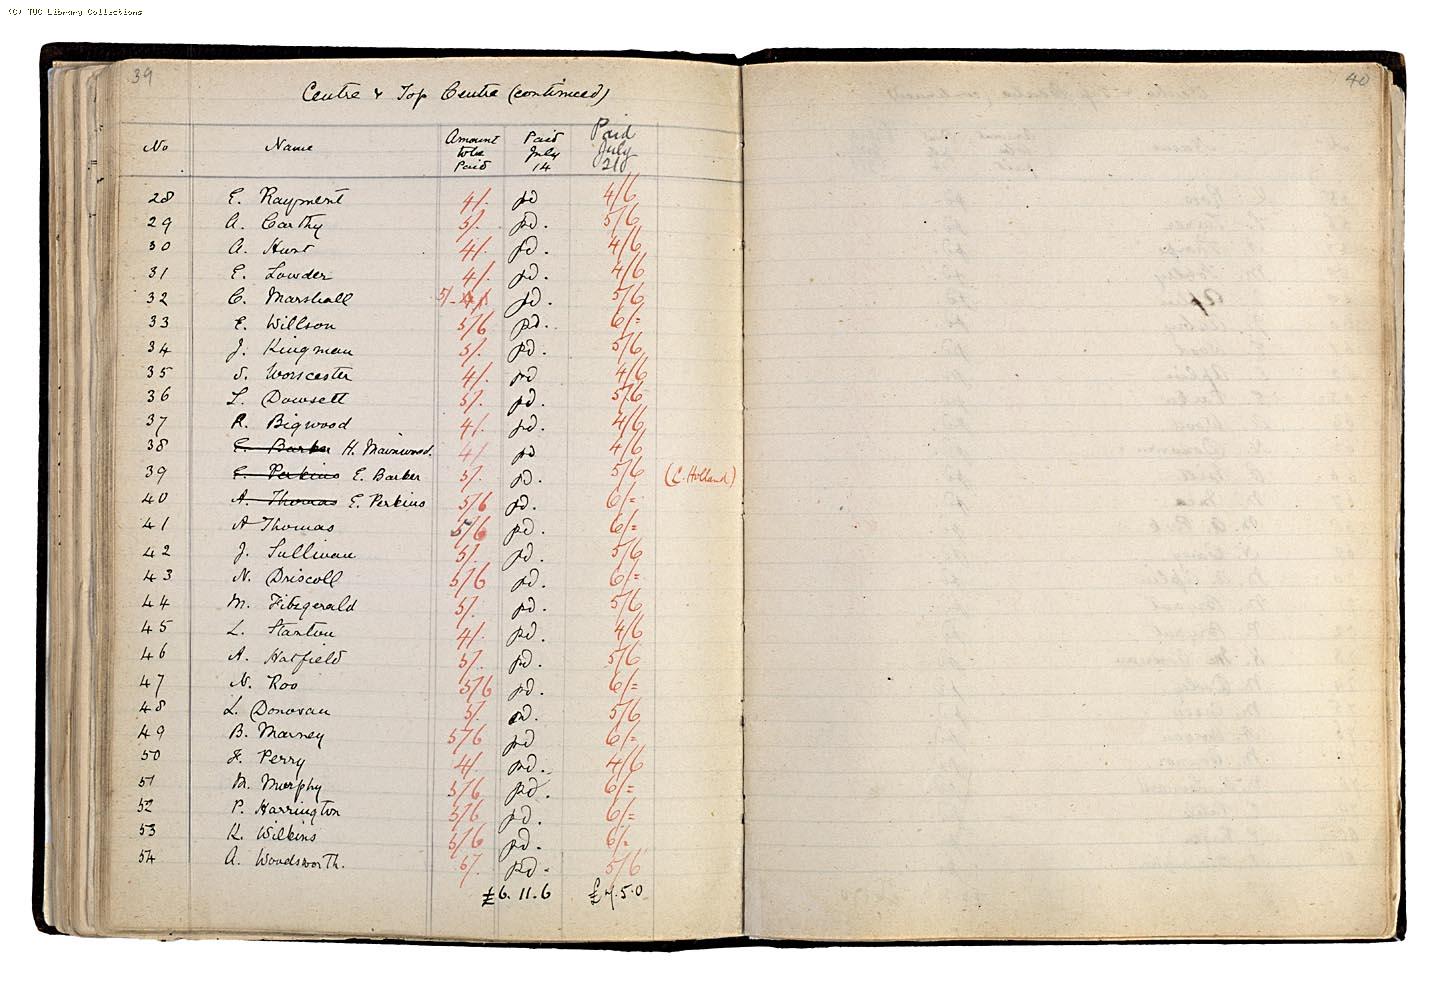 (C) TUC Library Collections
39
40
Centre & Top Centre (continued)
No Name Amount to be Paid Paid July 14 Paid July 21
28 E. Rayment 4/. pd 4/6
29 A. Carthy 5/. pd. 5/6
30 A. Hunt 4/. pd. 4/6
31 E. Lowder 4/. pd. 4/6
32 C. Marshall 5/- pd. 5/6
33 E. Willson 5/6 pd. 6/=
34 J. Kingman 5/. pd. 5/6
35 S. Worscester 4/. pd 4/6
36 L. Dowsett 5/. pd. 5/6
37 R. Bigwood 4/. pd. 4/6
38 E. Barker H. Mainwood. 4/ pd 4/6
39 E. Perkins E. Barker 5/. pd. 5/6 (C. Holland)
40 A. Thomas E. Perkins 5/6 pd. 6/=
41 A Thomas 5/6 pd. 6/=
42 J. Sullivan 5/. pd. 5/6
43 N. Driscoll 5/6 pd. 6/=
44 M. Fitzgerald 5/. pd. 5/6
45 L. Stanton 4/. pd. 4/6
46 A. Hatfield 5/. pd. 5/6
47 N. Roo 5/6 pd. 6/=
48 L. Donovan 5/. pd. 5/6
49 B. Marney 5/6 pd 6/=
50 F. Perry 4/. pd. 4/6
51 M. Murphy 5/6 pd. 6/=
52 P. Harrington 5/6 pd. 6/=
53 K. Wilkins 5/6 pd. 6/-
54 A. Woodsworth. 5/. pd. 5/6
£6.11.6 £7.5.0